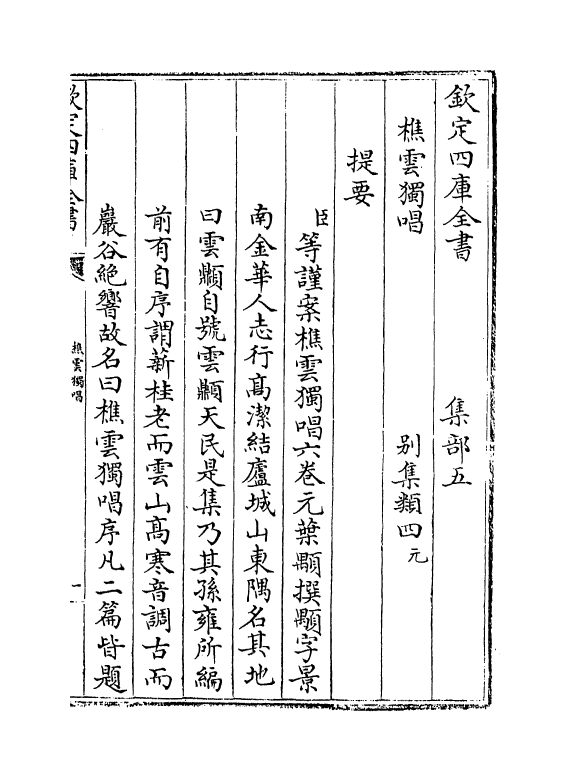 欽定四庫全書　　集部五
樵雲獨唱　　別集類四元
提要
臣等謹案樵雲獨唱六卷元葉顒撰顒字景
南金華人志行髙潔結廬城山東隅名其地
曰雲顥自號雲顥天民是集乃其孫雍所編
前有自序謂薪桂老而雲山髙寒音調古而
巖谷絶響故名曰樵雲獨唱序凡二篇皆題
欽定四庫全書
樵雲獨唱
一